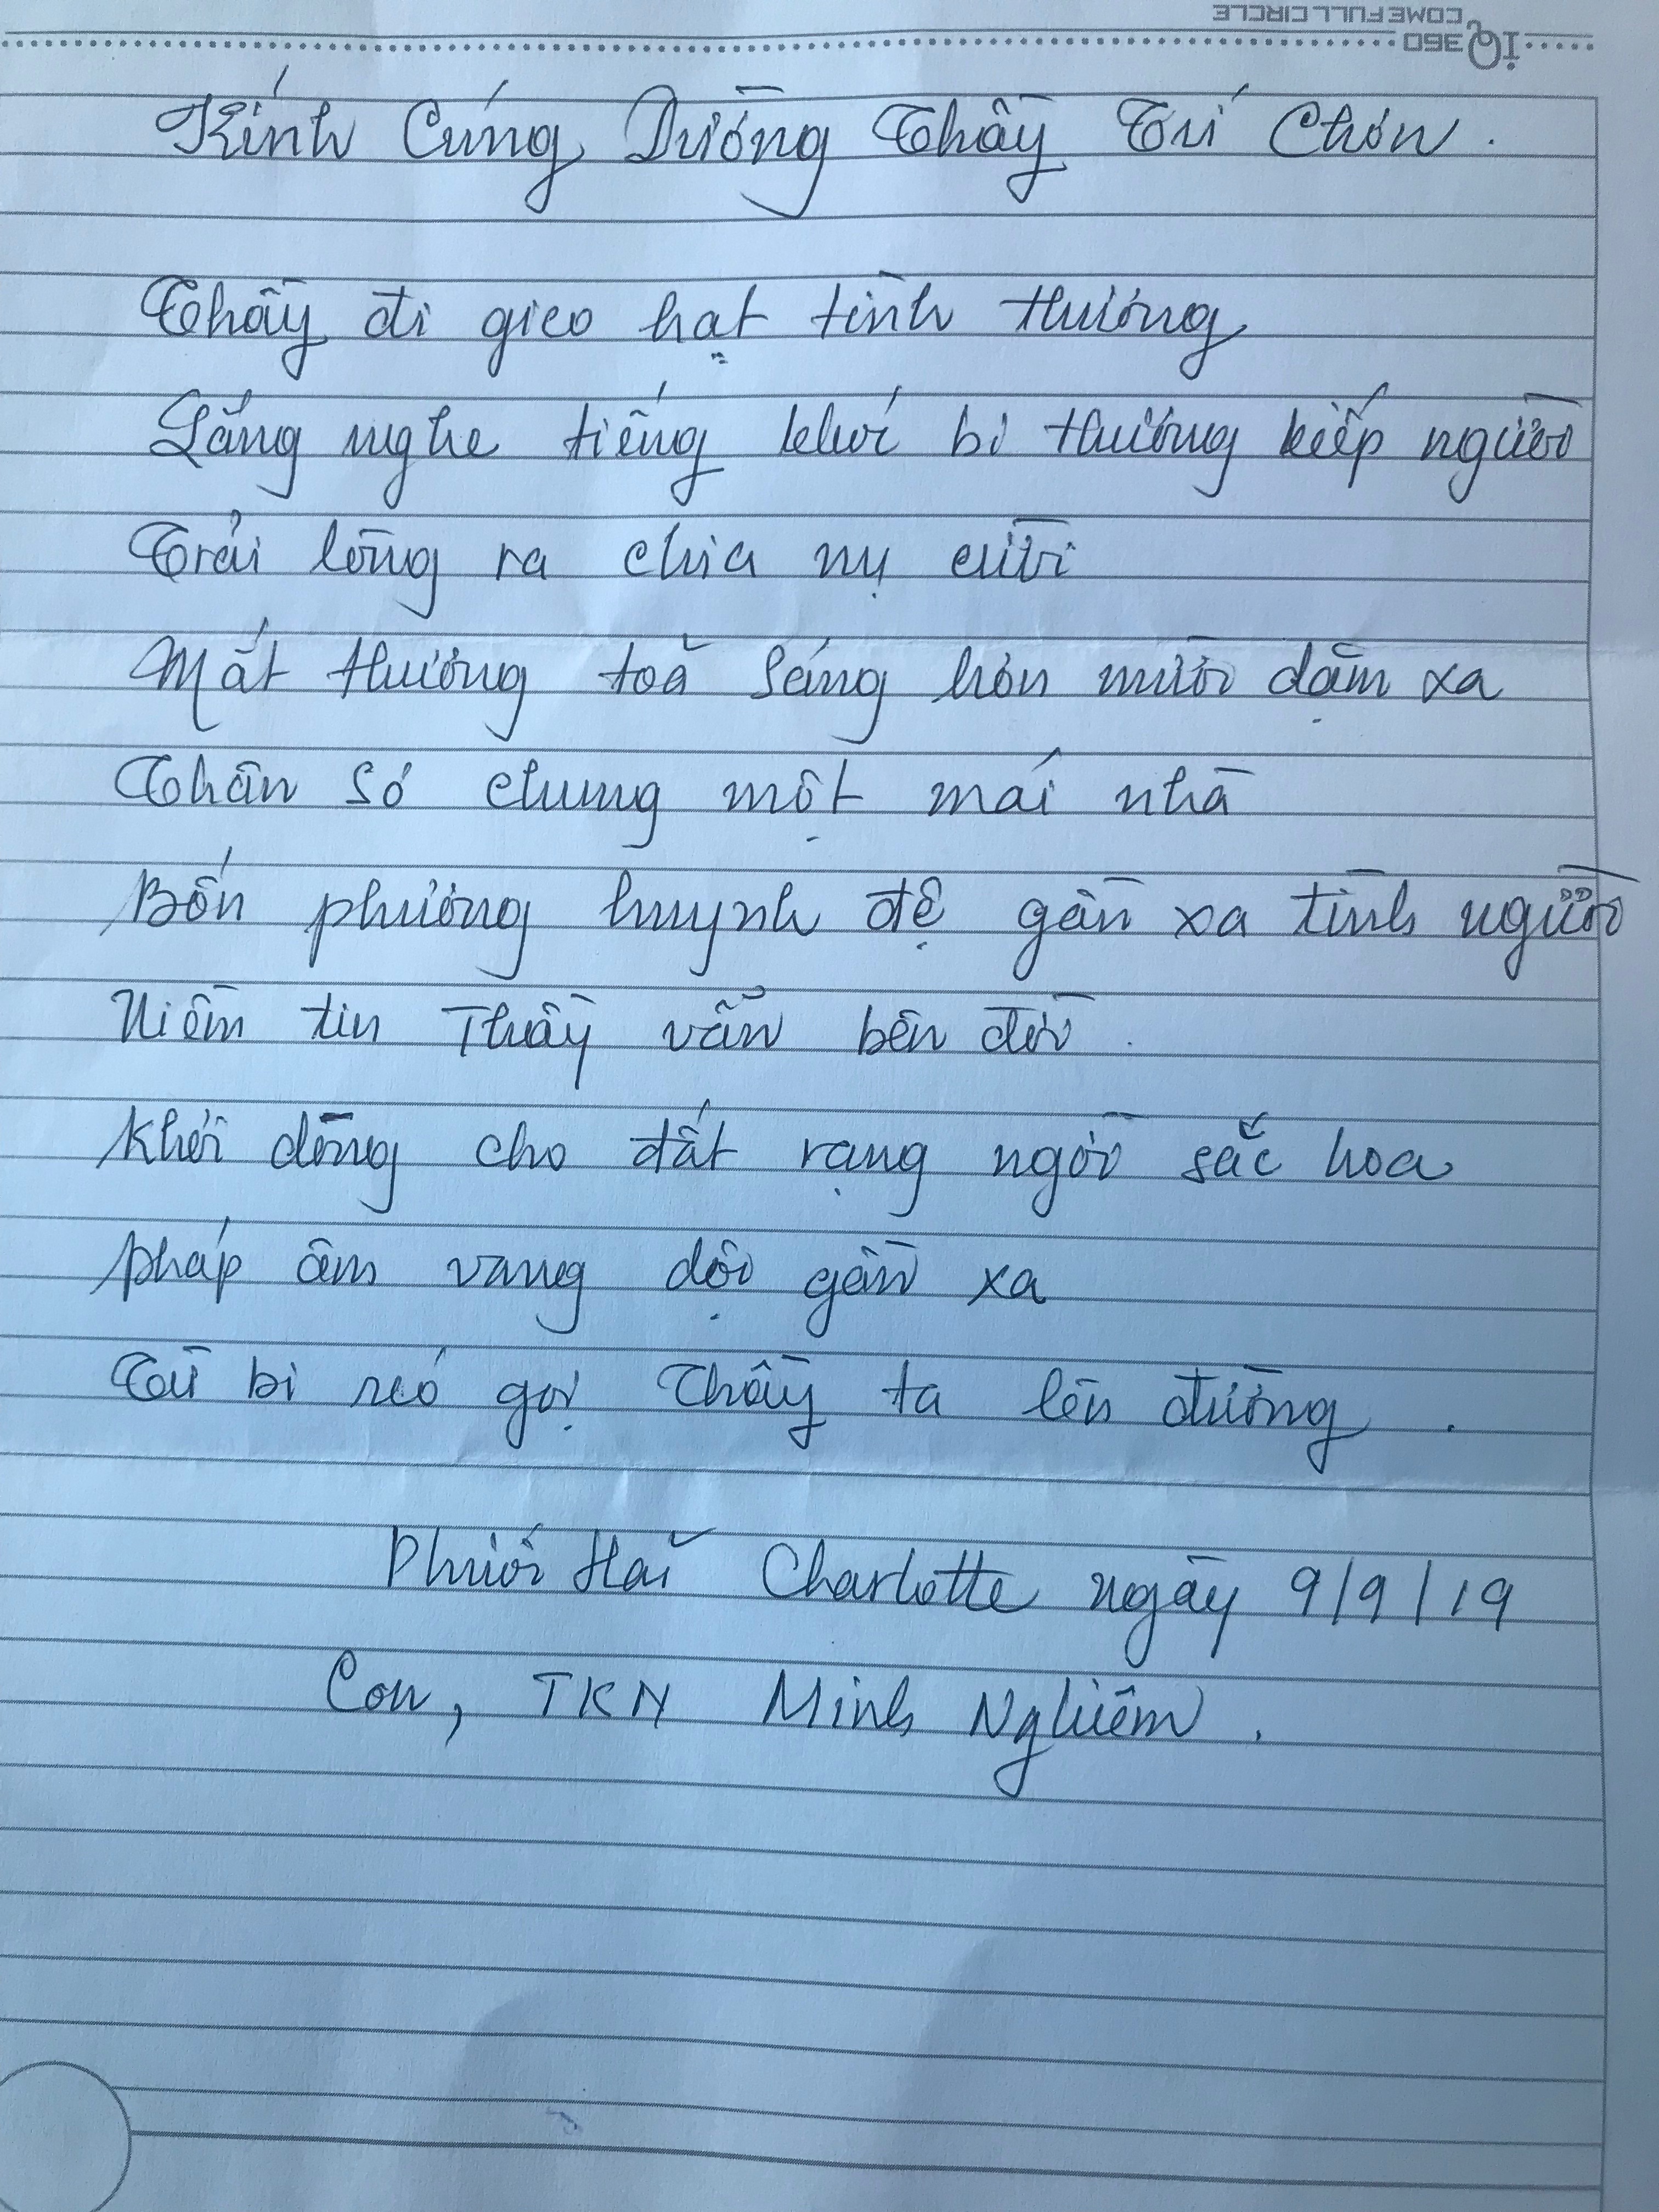 COME FULL CIRCLE
iQ 360
Kính Cúng Dường Thầy Trí Chơn.
Thầy đi gieo hạt tình thương
Lắng nghe tiếng khóc bi thương kiếp người
Trải lòng ra chia nụ cười
Mắt thương toả sáng hơn mười dặm xa
Thân sơ chung một mái nhà
Bốn phương huynh đệ gần xa tình người
Niềm tin Thầy vẫn bên đời.
Khơi dòng cho đất rạng ngời sắc hoa
Pháp âm vang dội gần xa
Từ bi réo gọi Thầy ta lên đường.
Phước Hải Charlotte ngày 9/9/19
Con, TKN Minh Nghiêm.